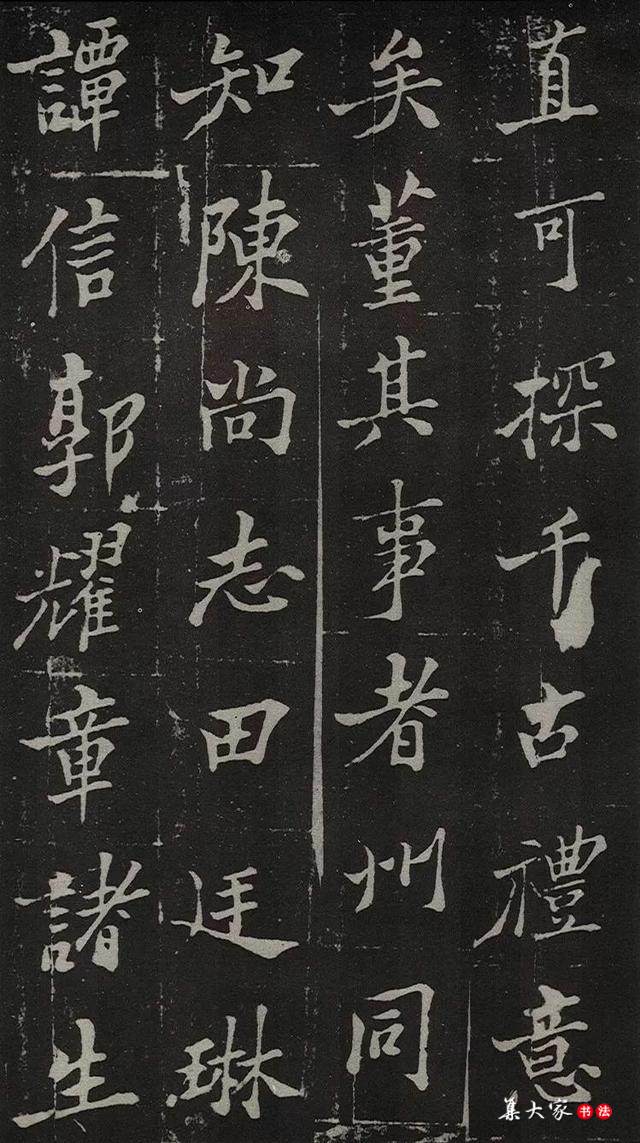 直可探千古禮意
矣董其事者州同
知陳尚志田廷琳
譚信郭耀章諸生
集大家书法